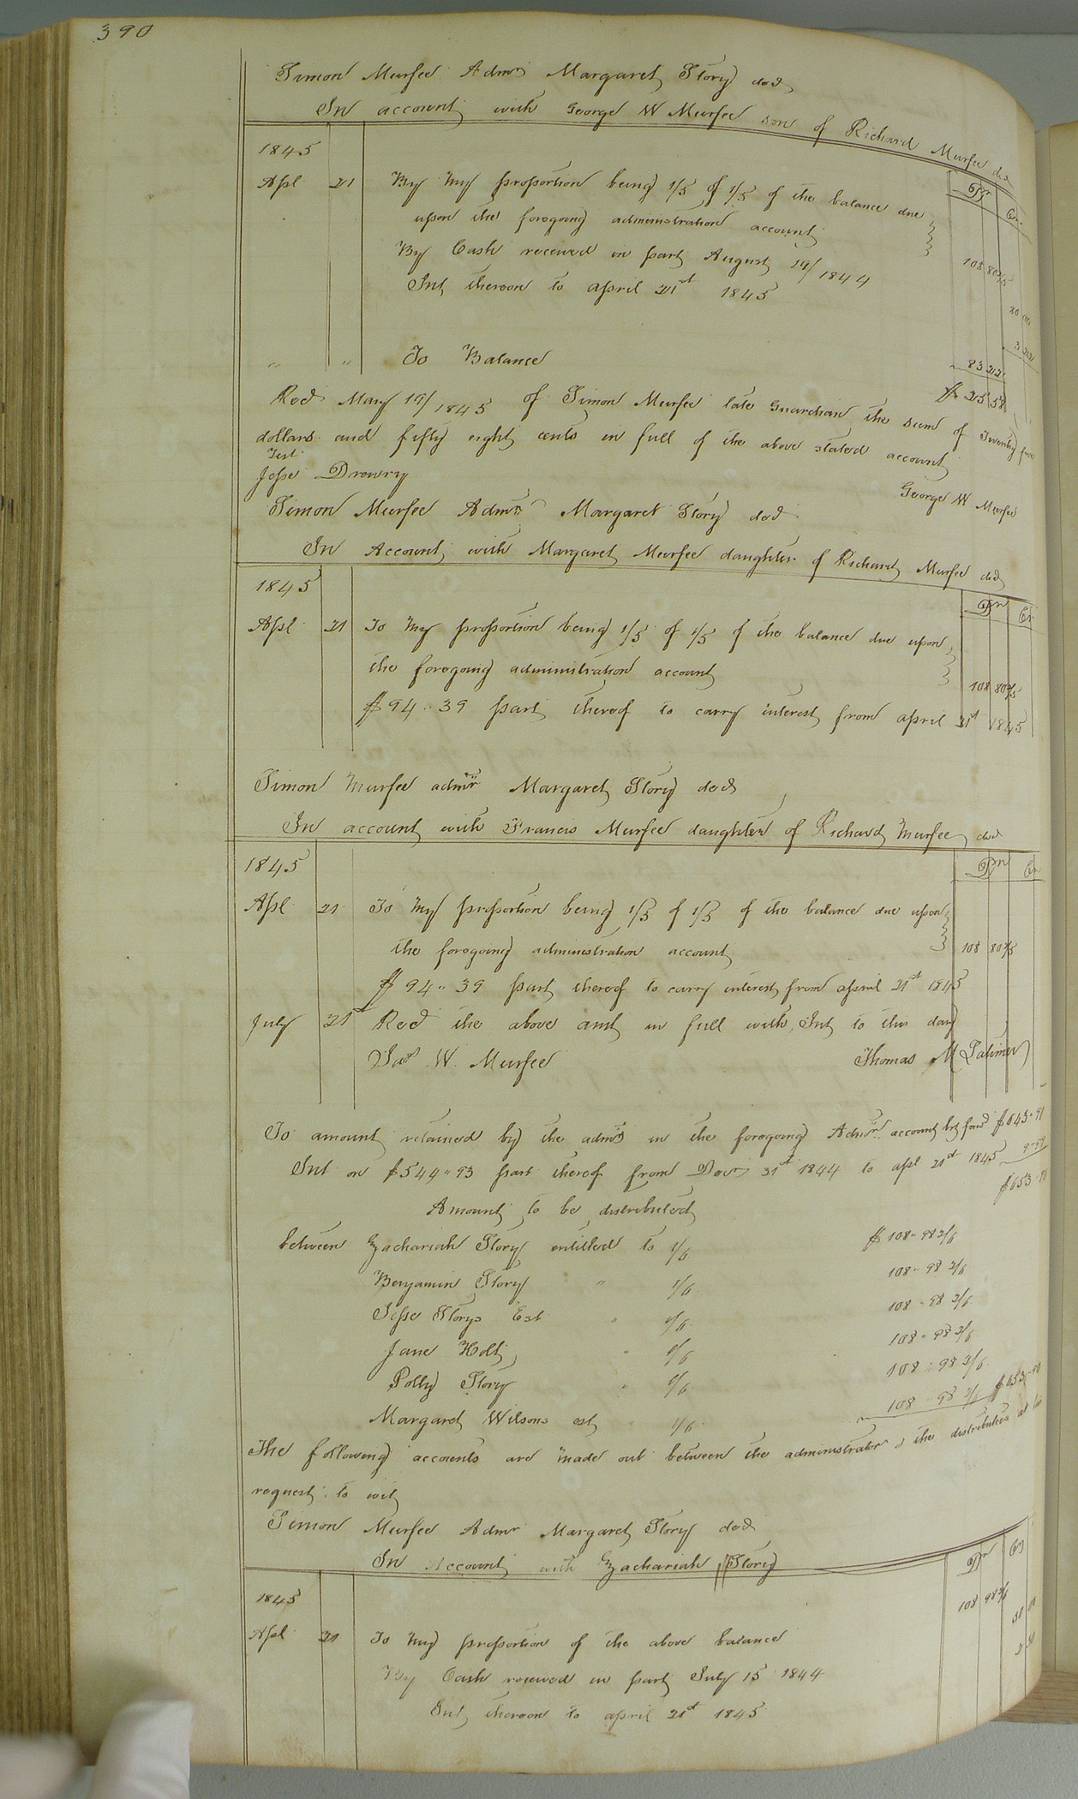 390
Simon Murfee Admr Margaret Story decd
In account with George W Murfee son of Richard Murfee decd
1845
Dr Cr
Apl 21 By my proportion being 1/5 of 1/5 of the balance due
upon the foregoing administration account 108 80 4/5
By Cash received in part August 19/1844
Int thereon to april 21st 1845
" " To Balance 83 212
$ 25 58
Recd May 19/1845 of Simon Murfee late Guardian the sum of Twenty five
dollars and fifty eight cents in full of the above stated account
Test
Jesse Drewry
George W Murfee
Simon Murfee Admr Margaret Story decd
In Account with Margaret Murfee daughter of Richard Murfee decd
1845
Dr Cr
Apl 21 To my proportion being 1/5 of 1/5 of the balance due upon
the foregoing administration account 108 80 4/5
$94.39 part thereof to carry interest from april 21st 1845
Simon Murfee admr Margaret Story decd
In account with Francis Murfee daughter of Richard Murfee decd
1845
Dr Cr
Apl 21 To my proportion being 1/5 of 1/5 of the balance due upon
the foregoing administration account 108 80 4/5
$94.39 part thereof to carry interest from april 21st 1845
July 21st Recd the above amt in full with Int to this day
W. Murfee Thomas M Latimer
To amount retained by the admr in the foregoing Admr account bt ford $643.91
Int on $544.93 part thereof from Decr 31st 1844 to apl 21st 1845
Amount to be distributed $653.90
between Zachariah Story entitled to 1/6 $108.98 2/6
Benjamin Story " 1/6 108.98 2/6
Jesse Storys Est " 1/6 108.98 2/6
Jane Holt " 1/6 108.98 2/6
Polly Story " 1/6 108.98 2/6
Margaret Wilsons est " 1/6 108.98 2/6 $653.90
The following accounts are made out between the administrator & the distributees at
request to wit
Simon Murfee Admr Margaret Story decd
In Account with Zachariah Story
1845
Dr Cr
Apl 21 To my proportion of the above balance 108 98 2/6
By Cash received in part July 15 1844
Int thereon to april 21st 1845